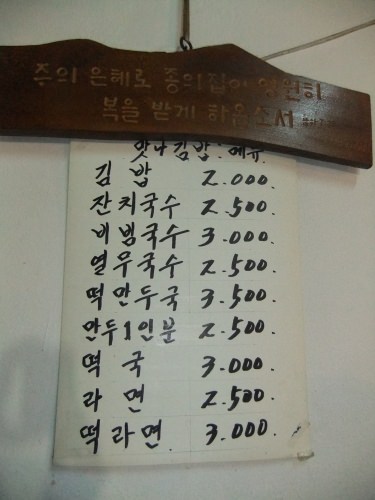 주의 은혜로 종의집이 영원히
복을 받게 하옵소서
맛나김밥: 메뉴
김밥 2.000.
잔치국수 2.500.
비빔국수 3.000.
열무국수 2.500.
떡만두국 3.500.
만두1인분 2.500.
떡국 3.000.
라면 2.500.
떡라면. 3.000.